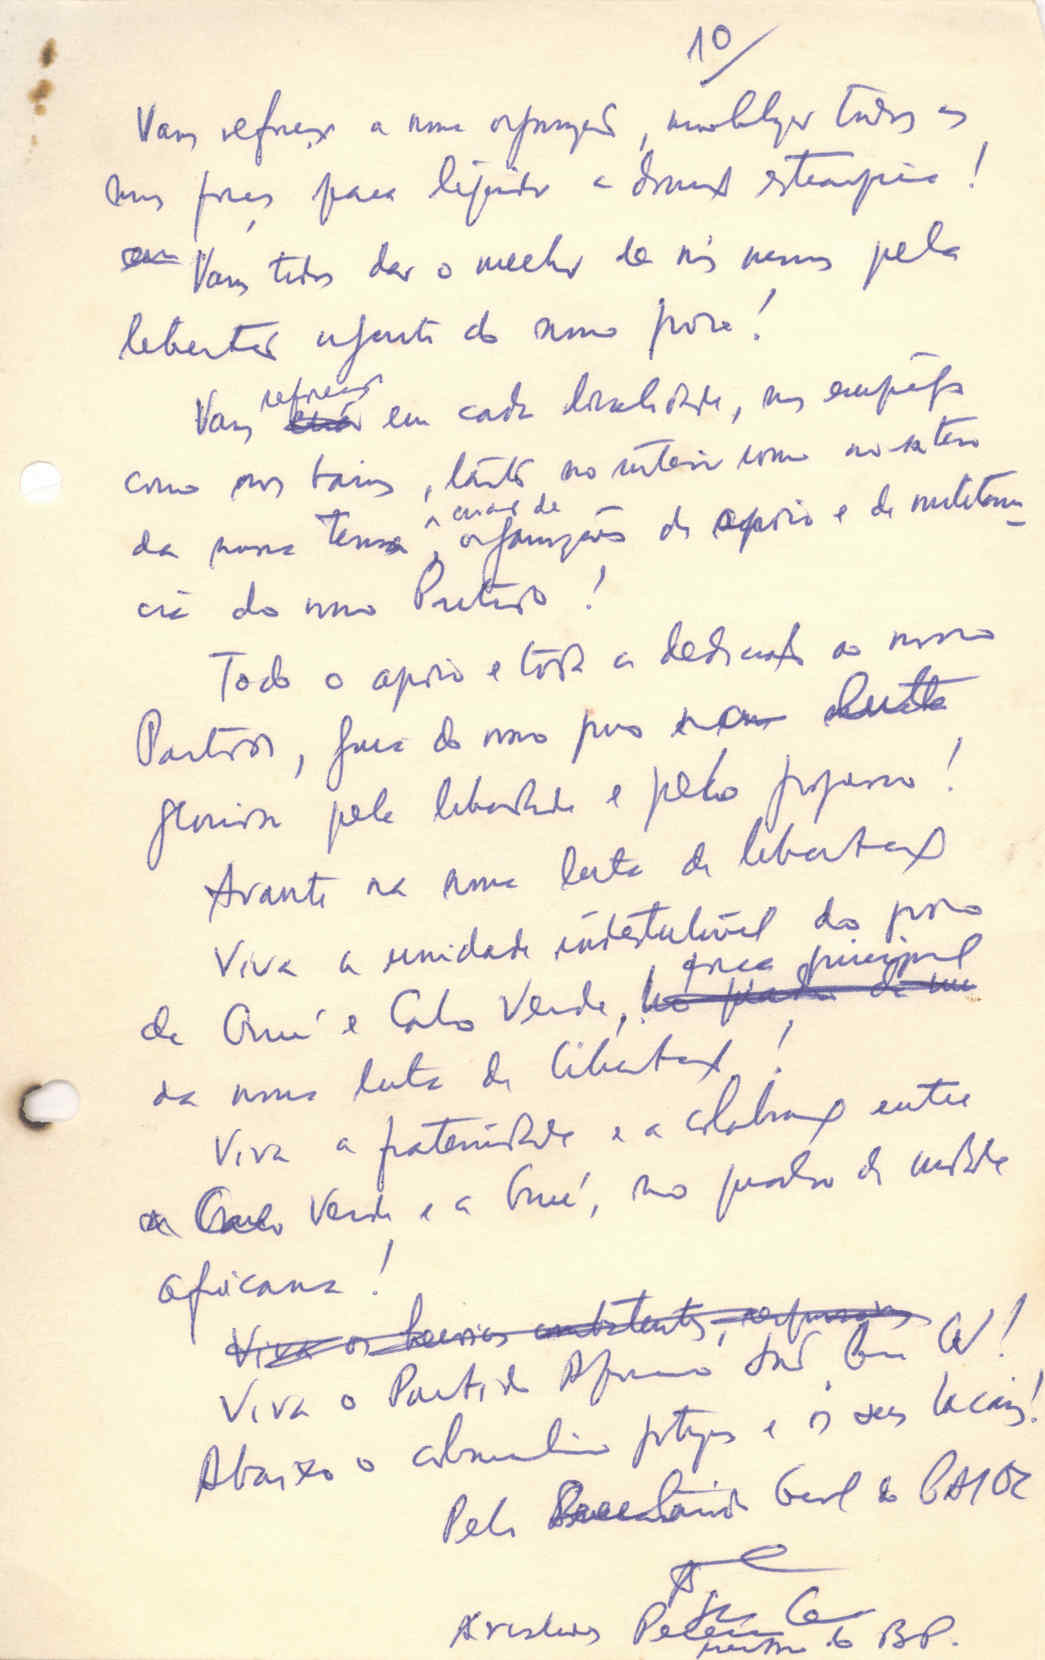 10/
Vamos reforçar a nossa organização, mobilizar todas as
nossas forças para liquidar a dominação estrangeira!
Vamos todos dar o melhor de nós mesmos pela
libertação urgente do nosso povo!
Vamos reforçar em cada localidade, nos empregos
como nos bairros, tanto no interior como no exterior
da nossa terra, organizações de apoio e de militân-
cia do nosso Partido!
Todo o apoio e toda a dedicação ao nosso
Partido, guia do nosso povo na luta
gloriosa pela liberdade e pelo progresso!
Avante na nossa luta de libertação
Viva a unidade indestrutível do povo
da Guiné e Cabo Verde, força principal
da nossa luta de libertação!
Viva a fraternidade e a colaboração entre
Cabo Verde e a Guiné, no quadro da unidade
africana!
Viva os heroicos combatentes,
Viva o Partido Africano da Ind. Guiné CV!
Abaixo o colonialismo português e os seus lacaios!
Pelo Secretário Geral do PAIGC
Aristides Pereira
membro do BP.